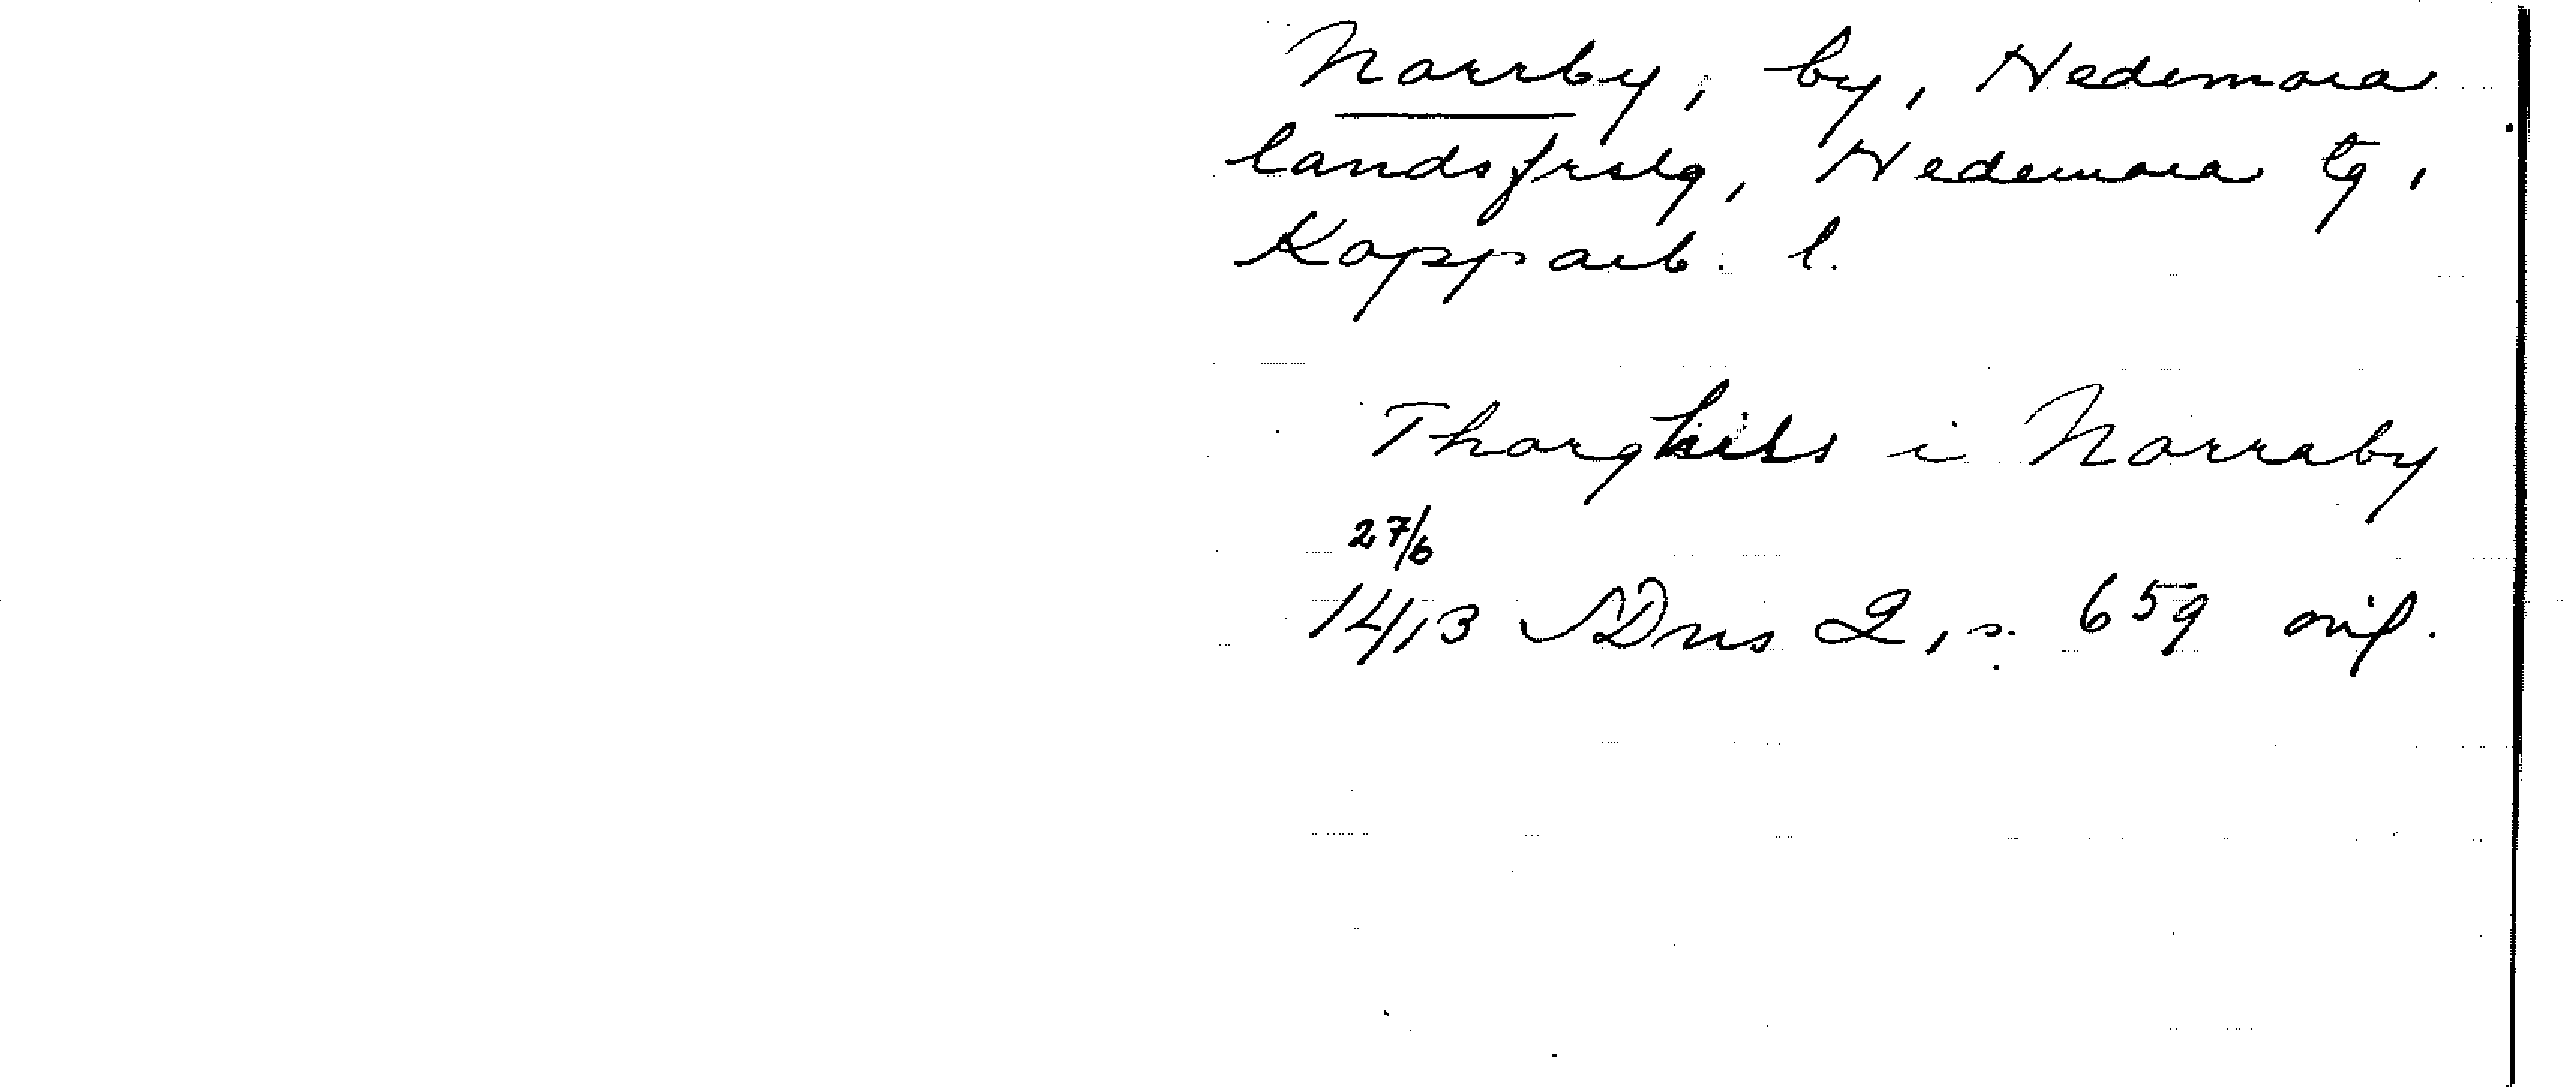 Norrby, by, Hedemora
landsfrslg, Hedemora tg,
Kopparb. l.
Thorghils i Norraby
27/6
1413 SDns 2, s. 659 orig.